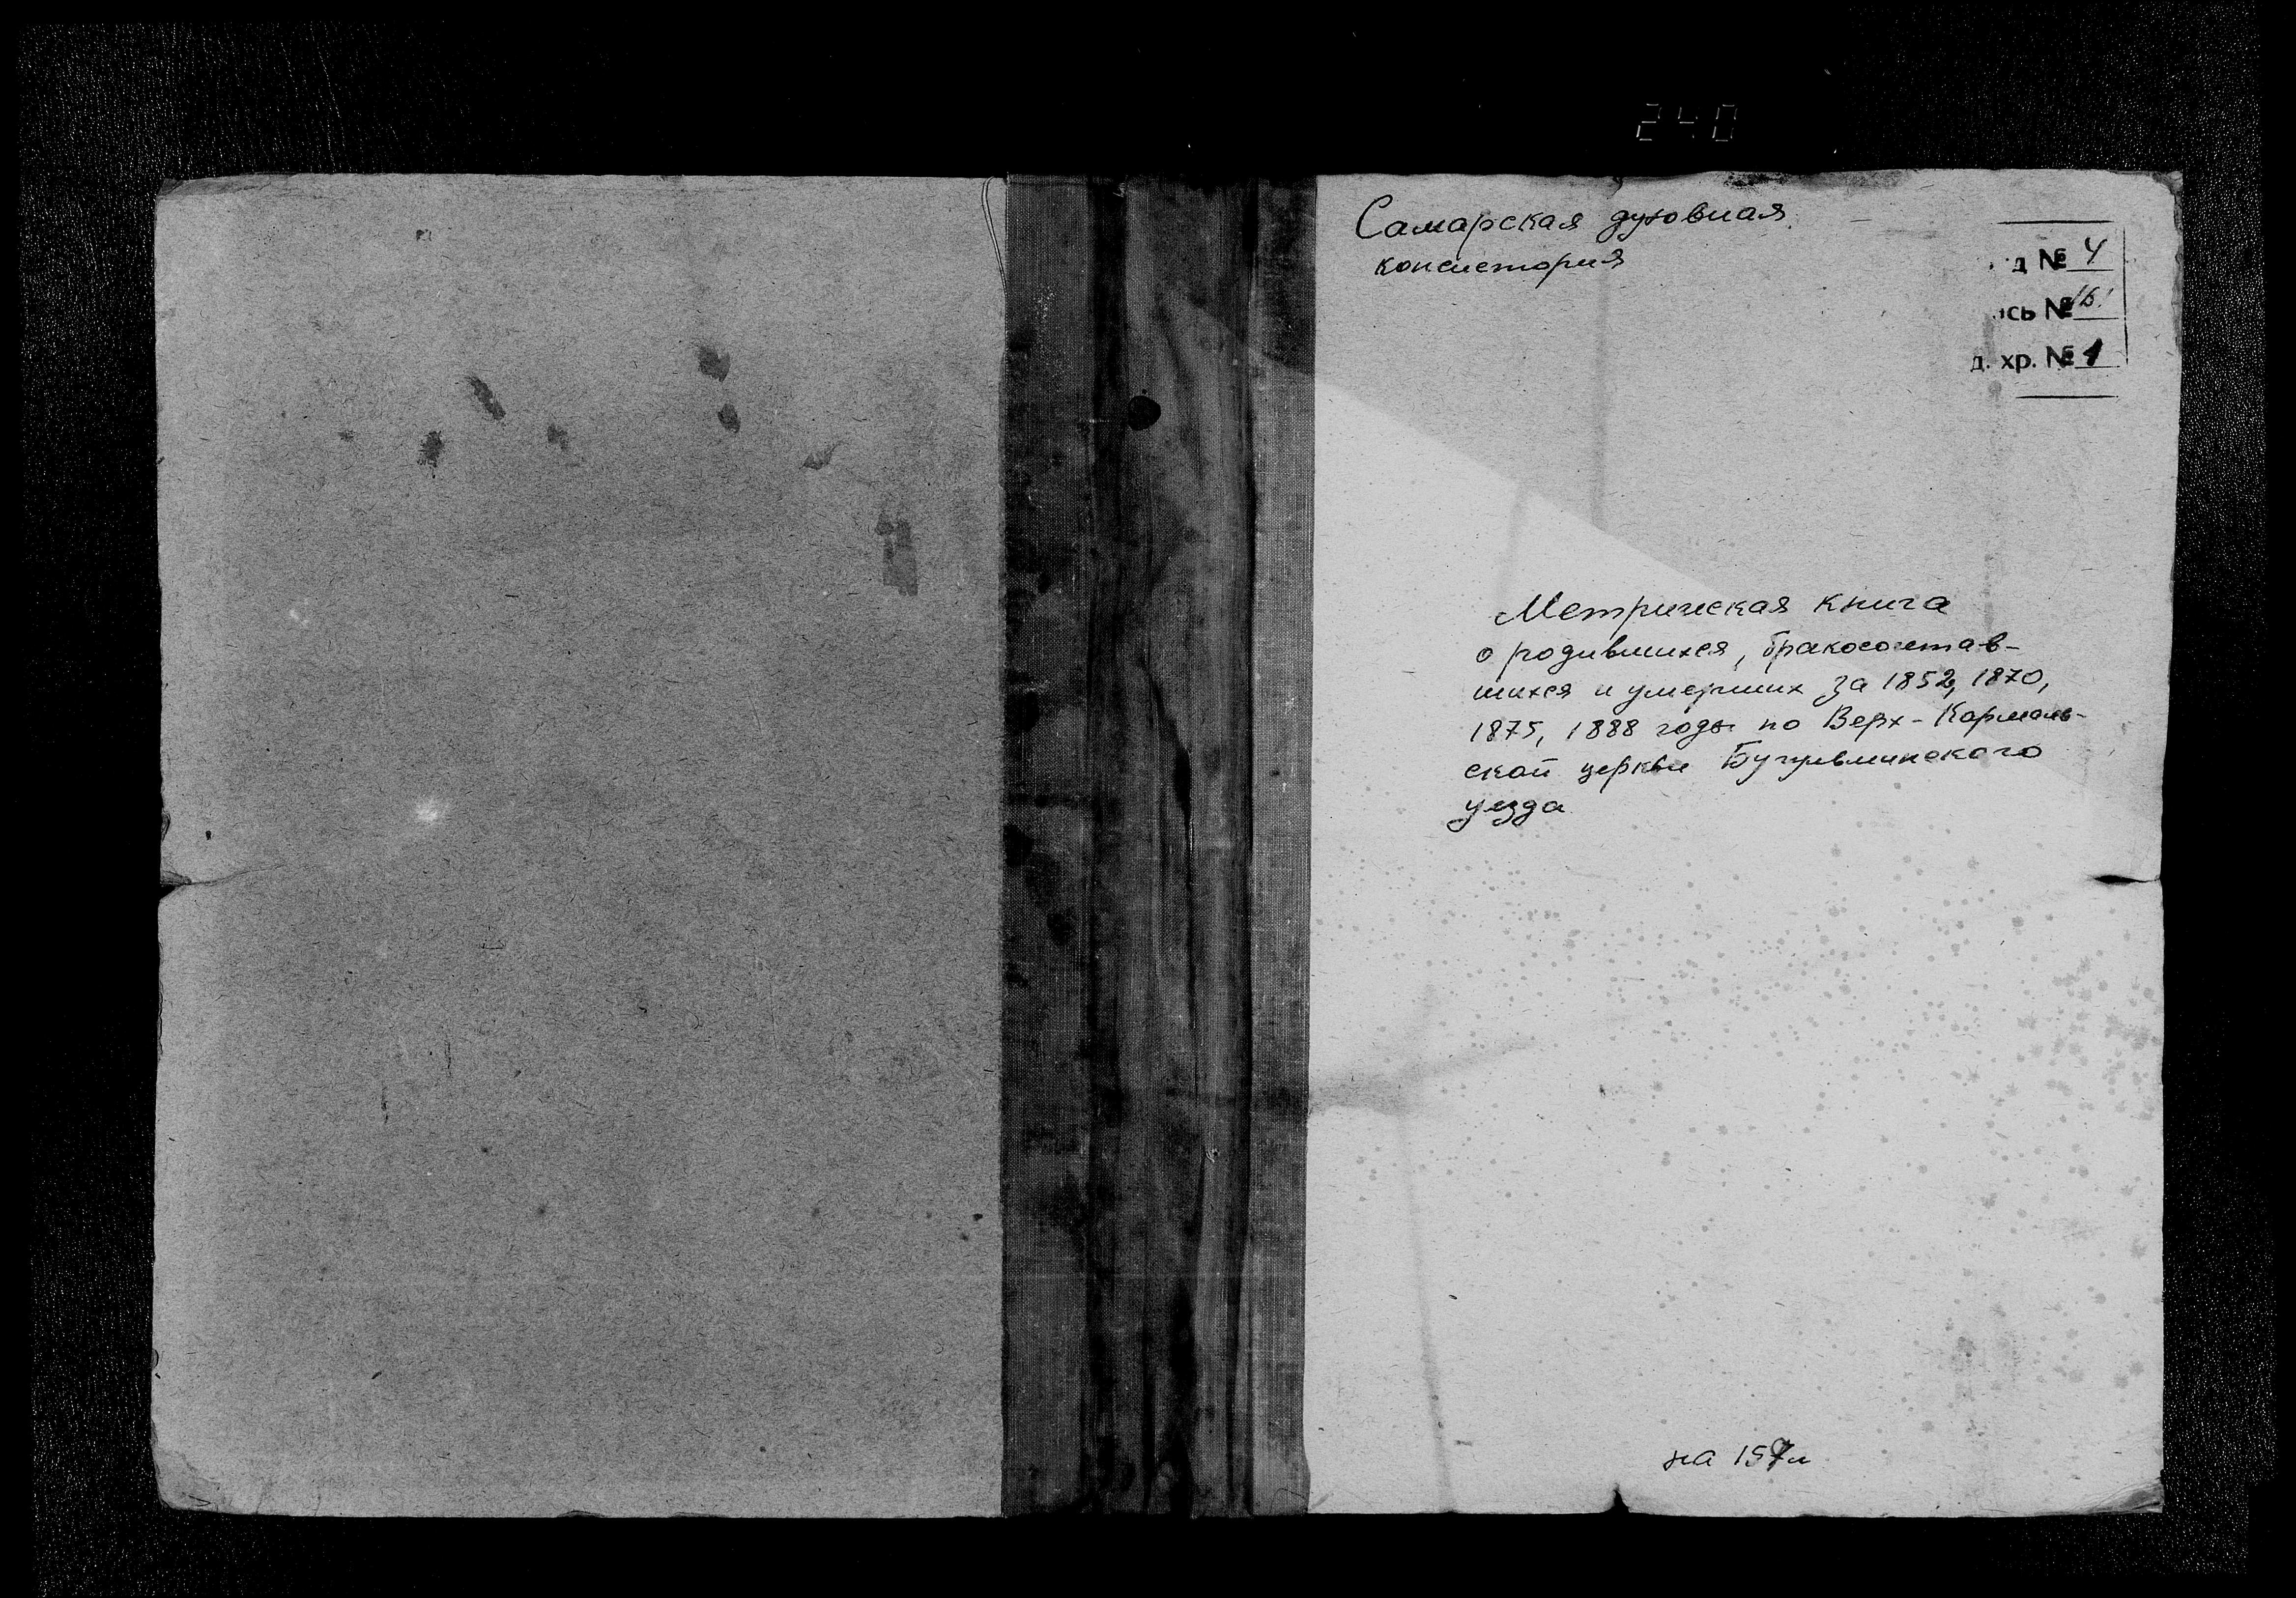 240
Самарская духовная
консистория
д № 4
ись №
д. хр. № 1
Метрическая книга
о родившихся, бракосочетав-
шихся и умерших за 1852, 1870,
1875, 1888 годы по Верх-Кармаль-
ской церкви Бугульминского
уезда
на 157 л